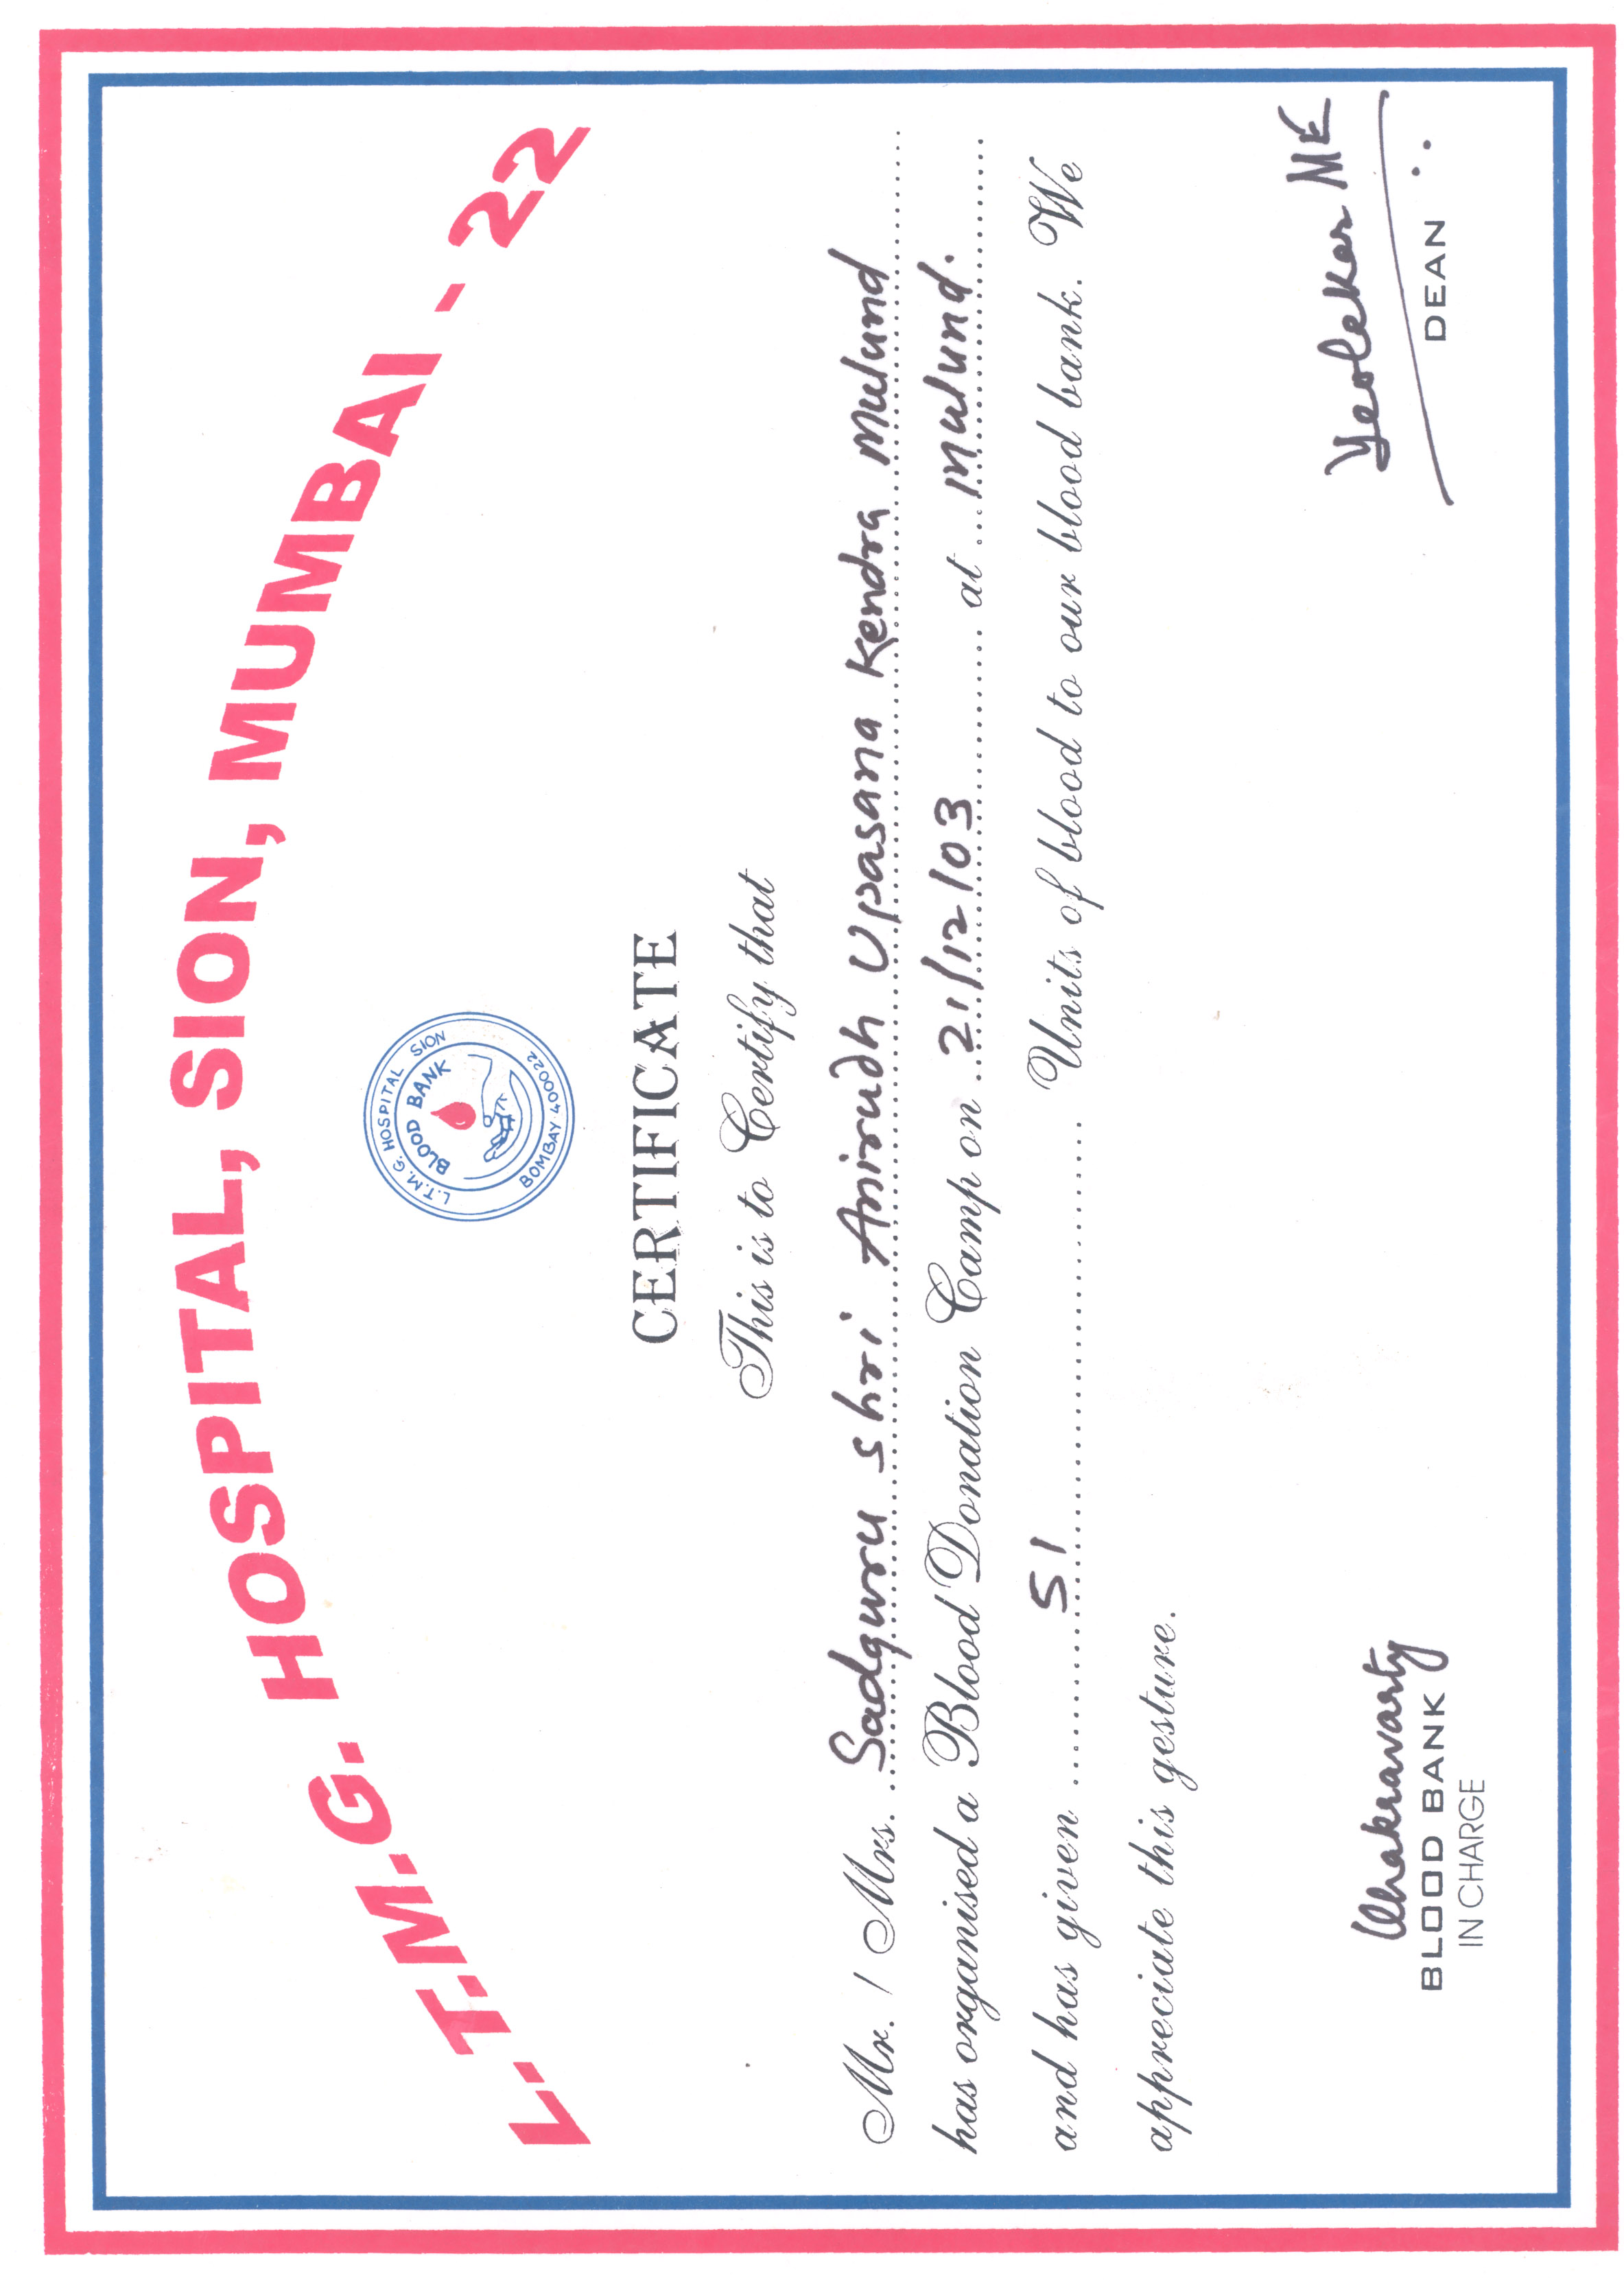 L.T.M.G. HOSPITAL, SION, MUMBAI - 22
L.T.M.G. HOSPITAL SION
BLOOD BANK
BOMBAY 400022
CERTIFICATE
This is to Certify that
Mr. / Mrs. Sadguru shri Anirudh Upasana Kendra Mulund
has organised a Blood Donation Camp on 21/12/03 at Mulund.
and has given 51 Units of blood to our blood bank. We
appreciate this gesture.
Chakravarty
Yeolekar ME
BLOOD BANK
IN CHARGE
DEAN